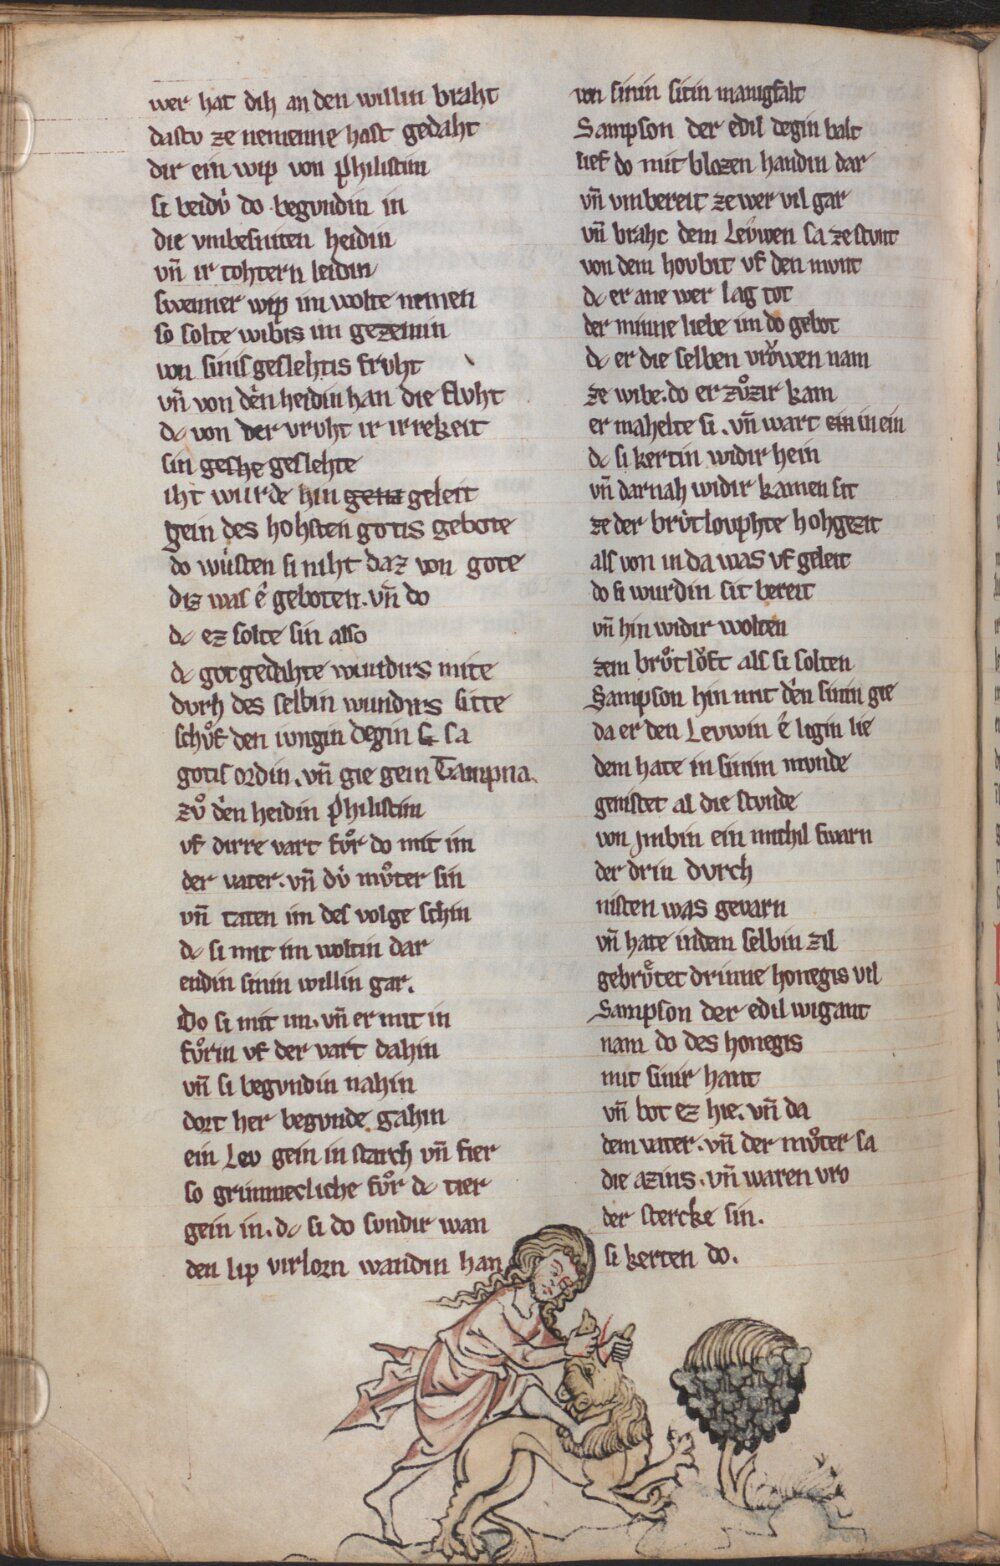 wer hat dih an den willin braht
dastv ze nemenne hast gedaht
dir ein wip von philistim
si beidv́ do begvndin in
die vmbesniten heidin
vn̄ ir tohtern leidin
swenner wip im wolte nemen
so solte wibis im gezemin
von sinis geslehtis frvht
vn̄ von den heidin han die flvht
dc von der vrvht ir irrekeit
sin geshe geslehte
iht wurde hin geleit
gein des hohsten gotis gebote
do wůsten si niht daz von gote
diz was ê geboten. vn̄ do
dc ez solte sin also
dc got gedahte wundirs mite
dvrh des selbin wundirs sitte
schůf den iungin degin sa
gotis ordin. vn̄ gie gein Tampna.
zů den heidin philistim
vf dirre vart fůr do mit im
der vater. vn̄ dv́ můter sin
vn̄ taten im des volge schin
dc si mit im woltin dar
endin sinin willin gar.
Do si mit im. vn̄ er mit in
fůrin vf der vart dahin
vn̄ si begvndin nahin
dort her begvnde gahin
ein Lev gein in starch vn̄ fier
so grimmecliche fůr dc tier
gein in. dc si do sundir wan
den lip virlorn wandin han
von sinin sitin manigfalt
Sampson der edil degin balt
lief do mit blozen handin dar
vn̄ vmbereit ze wer vil gar
vn̄ brahc dem Lev́wen sa ze stvnt
von dem hovbit vf den mvnt
dc er ane wer lag tot
der minne liebe im do gebot
dc er die selben vrǒwen nam
ze wibe. do er zůzir kam
er mahelte si. vn̄ wart ein in ein
dc si kertin widir hein
vn̄ darnah widir kamen sit
ze der brv́tlovphte hohgezit
als von in da was vf geleit
do si wurdin sit bereit
vn̄ hin widir wolten
zem brůtlǒft als si solten
Sampson hin mit den sinin gie
da er den Levwin ê ligin lie
dem hate in sinim mvnde
genistet al die stvnde
von Jmbin ein michil swarn
der drin dvrch
nisten was gevarn
vn̄ hate indem selbin zil
gebrůtet drinne honegis vil
Sampson der edil wigant
nam do des honegis
mit sinir hant
vn̄ bot ez hie. vn̄ da
dem vater. vn̄ der můter sa
die azins. vn̄ waren vro
der stercke sin.
si kerten do.